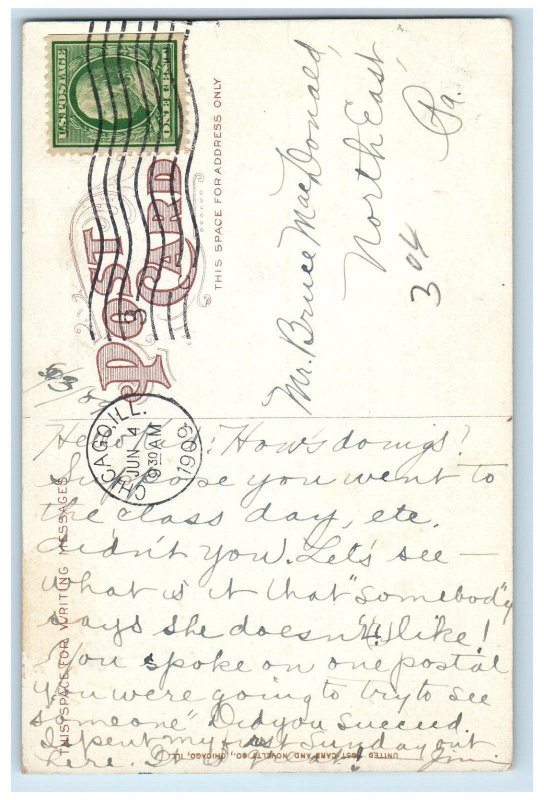 U.S. POSTAGE
ONE CENT
POST CARD
THIS SPACE FOR ADDRESS ONLY
CHICAGO, ILL.
JUN 4
9 30 AM
1909
Mr. Bruce MacDonald,
North East,
Pa.
304
THIS SPACE FOR WRITING MESSAGES
How's doings?
Suppose you went to
the class day, etc.
didn't you. Let's see —
what is it that "somebody"
says she doesn't like!
You spoke on one postal
you were going to try to see
someone" Did you succeed
I spent my first Sunday out
here.
UNITED POST CARD AND NOVELTY CO., CHICAGO, ILL.